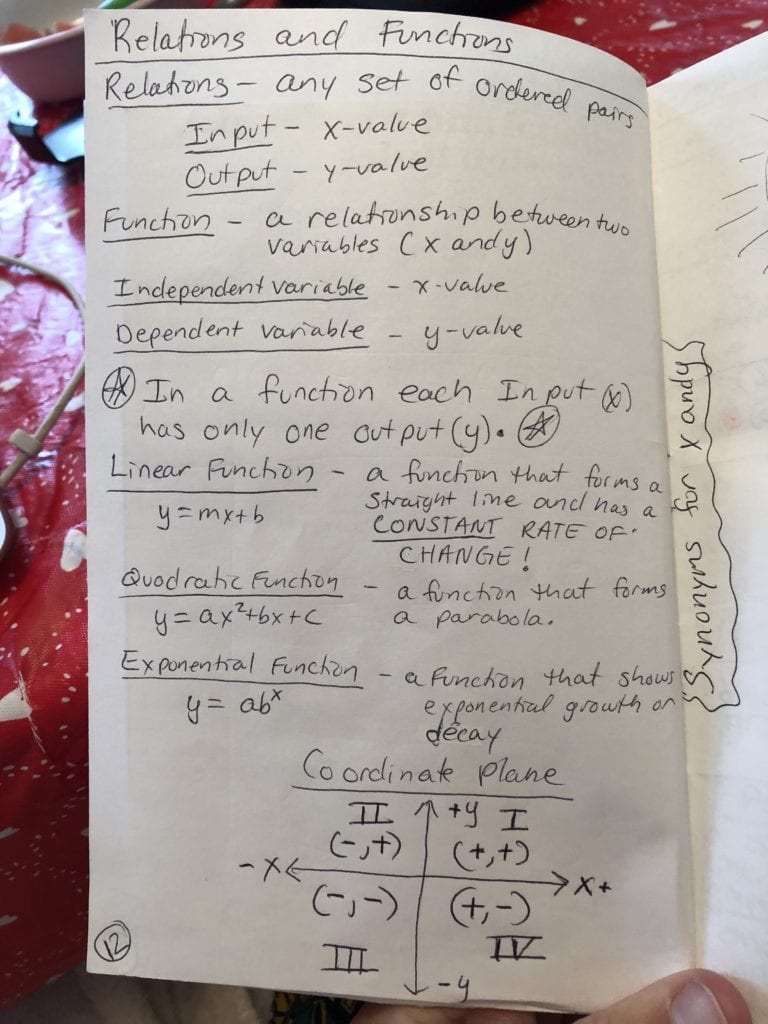 Relations and Functions
Relations - any set of ordered pairs
Input - x-value
Output - y-value
Function - a relationship between two
variables (x and y)
Independent variable - x-value
Dependent variable - y-value
In a function each Input (x)
has only one output (y).
Linear Function - a function that forms a
straight line and has a
y=mx+b CONSTANT RATE OF
CHANGE!
Quadratic Function - a function that forms
y=ax²+bx+c a parabola.
Exponential Function - a function that shows
y=abˣ exponential growth or
decay
Coordinate Plane
II +y I
(-,+) (+,+)
-x x+
(-,-) (+,-)
III IV
-y
12
Synonyms for x and y